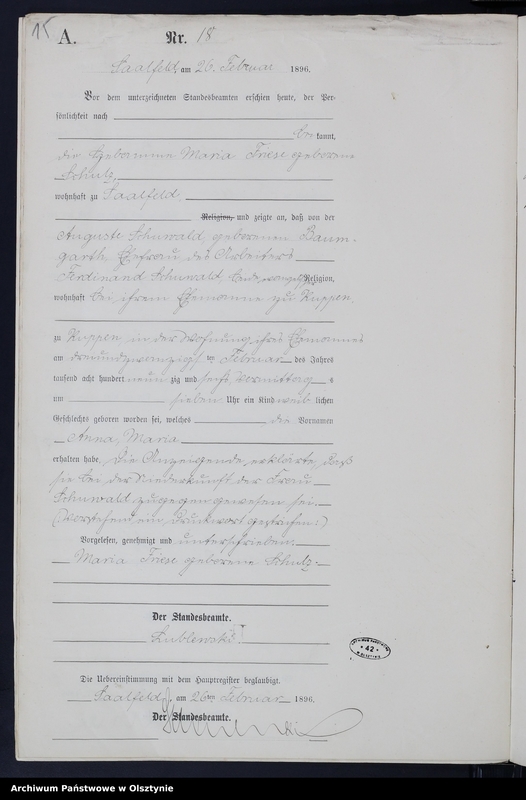 15
A. Nr. 18
Saalfeld, am 26. Februar 1896.
Vor dem unterzeichneten Standesbeamten erschien heute, der Per-
sönlichkeit nach
be kannt,
die Hebamme Maria Friese geborene
Schulz,
wohnhaft zu Saalfeld,
Religion, und zeigte an, daß von der
Auguste Schuwald, geborenen Baum-
garth, Ehefrau des Arbeiters
Ferdinand Schuwald, beide evangelischer Religion,
wohnhaft bei ihrem Ehemanne zu Kuppen,
zu Kuppen, in der Wohnung ihres Ehemannes
am dreiundzwanzigsten Februar des Jahres
tausend acht hundert neun zig und sechs, Vormittag s
um sieben Uhr ein Kind weib lichen
Geschlechts geboren worden sei, welches die Vornamen
Anna, Maria
erhalten habe. Die Anzeigende erklärte, daß
sie bei der Niederkunft der Frau
Schuwald zugegen gewesen sei.
(Vorstehend ein Druckwort gestrichen.)
Vorgelesen, genehmigt und unterschrieben.
Maria Friese geborene Schulz.
Der Standesbeamte.
Die Uebereinstimmung mit dem Hauptregister beglaubigt.
Saalfeld, am 26ten Februar 1896.
Der Standesbeamte.
* 42 *
Archiwum Państwowe w Olsztynie